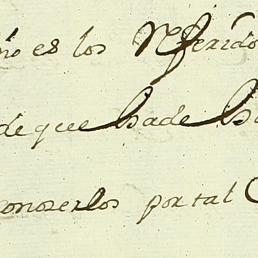 ño es los Referido
de que hade h
conoserlos por tal C